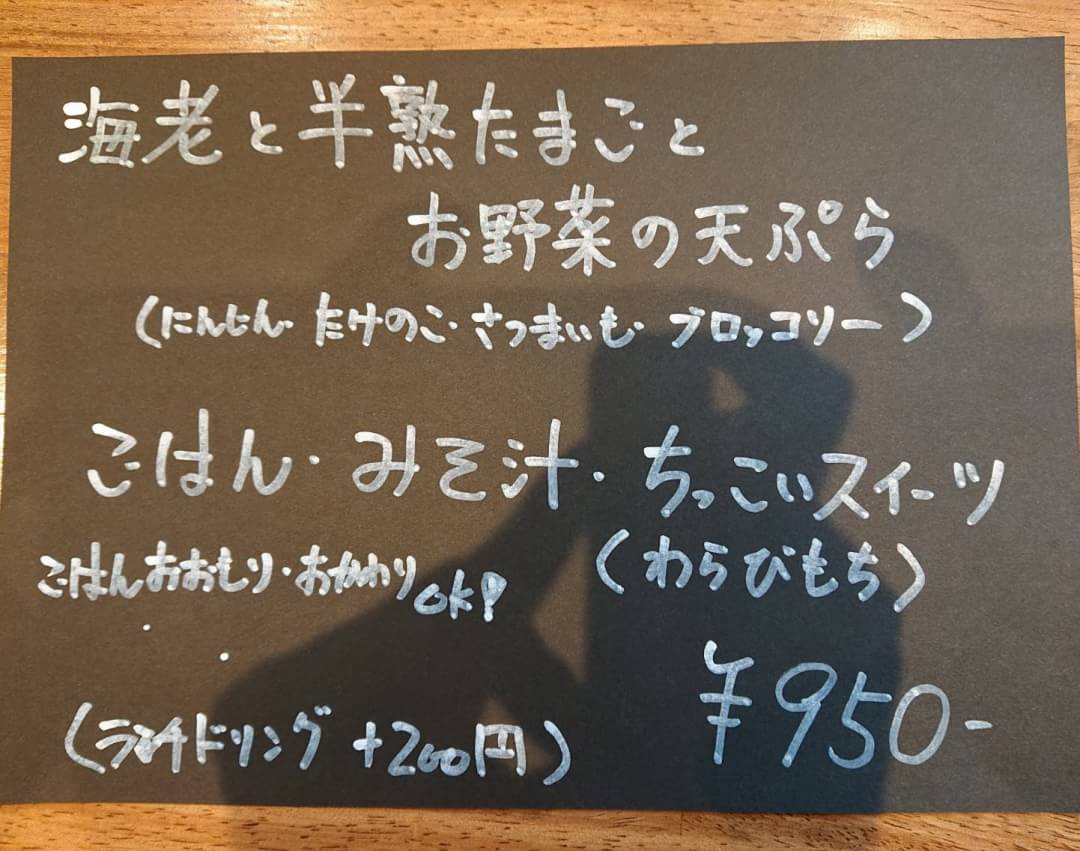 海老と半熟たまごと
お野菜の天ぷら
(にんじん・たけのこ・さつまいも・ブロッコリー)
ごはん・みそ汁・ちっこいスイーツ
ごはんおおもり・おかわりok!
(わらびもち)
(ランチドリング +200円)
¥950-